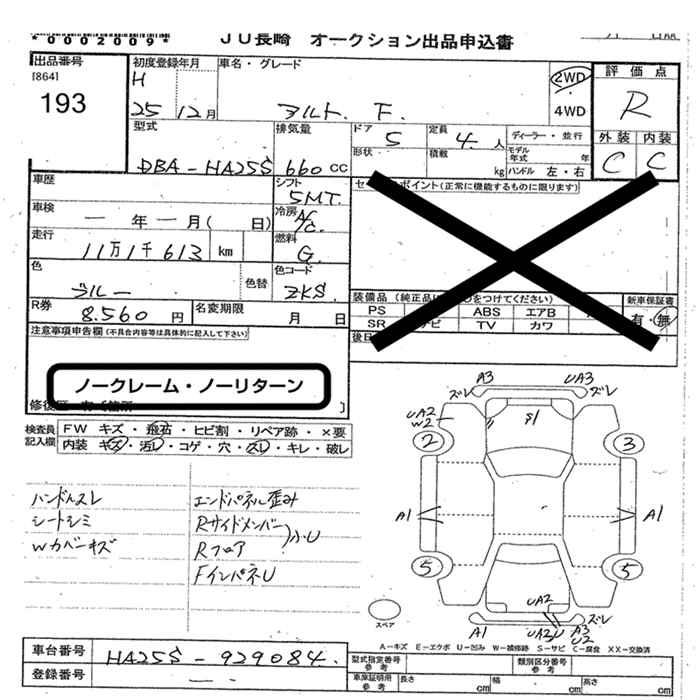 *0002009*
JU長崎 オークション出品申込書
出品番号 初度登録年月 車名・グレード 2WD 評価点
[864] H
193 25 12月 アルト F. 4WD R
型式 排気量 ドア 5 定員 4人 ディーラー・並行 外装 内装
形状 積載 kg モデル年式 年 C C
DBA-HA25S 660cc ハンドル 左・右
車歴 シフト 5MT. セ ポイント(正常に機能するものに限ります)
車検 一年一月( 日) 冷房 A/C.
走行 11万1千613 km 燃料 G.
色 ブルー 色替 色コード ZKS. 装備品(純正品は をつけてください) 新車保証書
R券 8.560円 名変期限 月 日 PS ABS エアB 有・無
SR ナビ TV カワ
注意事項申告欄(不具合内容等は具体的に記入して下さい) 後日
ノークレーム・ノーリターン
修復歴
検査員 FW キズ・飛石・ヒビ割・リペア跡・×要
記入欄 内装 キズ・汚レ・コゲ・穴・スレ・キレ・破レ
ハンドルスレ エンドパネル歪み
シートシミ Rサイドメンバー
Wカバーキズ Rフロア
FインパネU
A3 UA3
ズレ ズレ
UA2 S1
W2
2 3
A1 A1
5 5
UA2 ズレ
スペア A1 UA2 U A3
U2
A-キズ E-エクボ U-凹み W-補修跡 S-サビ C-腐食 XX-交換済
車台番号 HA25S-929084. 型式指定番号 参考 類別区分番号 参考
登録番号 車庫証明用 参考 長さ cm 幅 cm 高さ cm